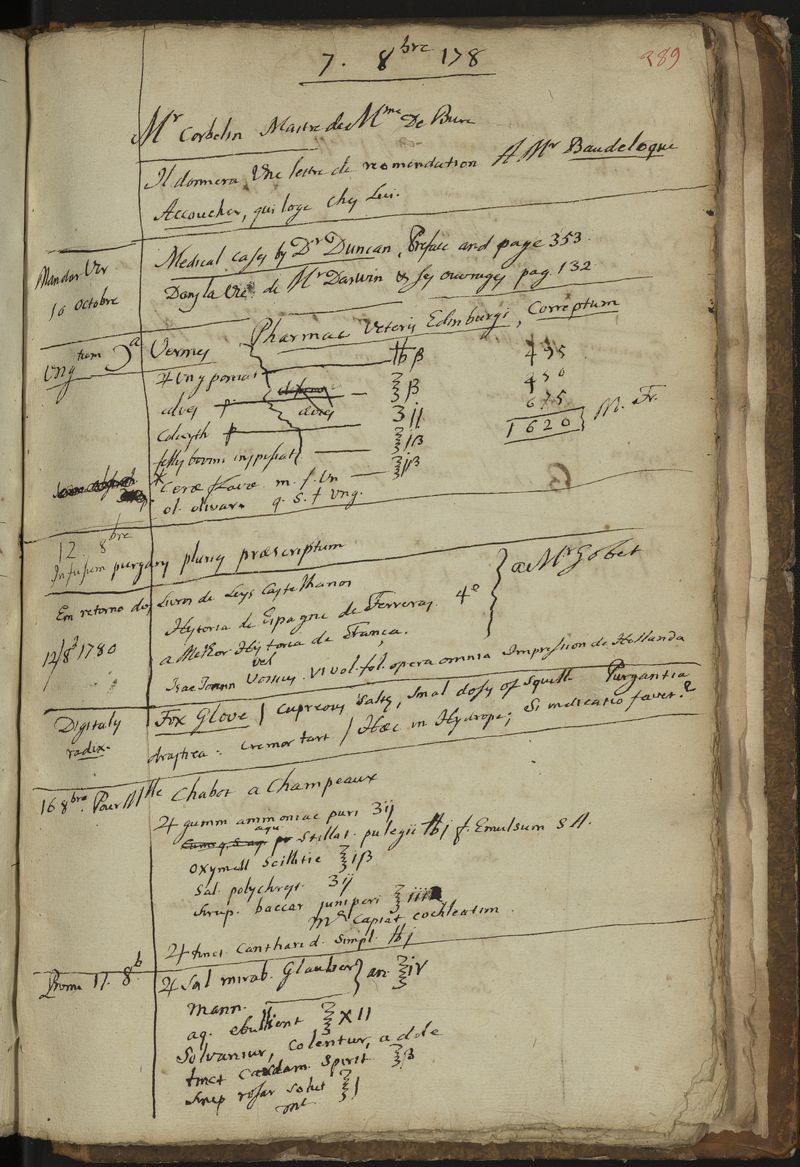 289
7. 8bre 178
Mr Corbelin Maitre de Mme De Bure
Il donnera Une lestre de recomendation A Mr Baudeloque
Accoucher, qui loge chez Lui.
Medical cases by Dr Duncan, Preface and page 353.
Dans la Vie de Mr Darwin & ses ouvrages pag. 132
10 octobre
Ungtum
Vermes Pharmac Veteris Edinburgi, Correptum
♃ Ung pomat ℔ β 495
aloes ℥ β 450
℥ij 675
fellis bovini inspissat ℥iβ 1620 } M. Fr.
Ceræ flavæ m. f. Un ℥iβ
ol. olivar q. s. f ung.
12 8bre
Infusum purgans pluries præscriptum
Em retorno dos Livros de Leys Castelhanos
Hystoria de Espagne de Ferreras. 4º } a Mr Gobet
12/8 1780
a Melhor Hystoria de França.
vel
Isac Joann Vossius. VI vol. fol. opera omnia Impression de Hollanda
Digitalis radix.
Fox Glove / Cupreous Salts, Smal doses of Squill Purgantia
drastica: cremor tart / Hæc in Hydrope; Si indicatio favet.?
16 8bre. Pour Mlle Chabot a Champeaux
♃ gumm ammoniac puri ʒij
aqu Stillat. pulegii ℔j f. Emulsum S A.
oxymell Scillitic ℥iβ
Sal. polychrest ʒij
Sirup. baccar juniperi ℥iii
Capiat cochleatim
♃ tinct Cantharid. Simpl. ℔j
17. 8b
♃ Sal mirab. Glauber } an ℥iv
Mann.
aq. ebullient ℥XII
Solvantur, Colentur, adde
tinct Cardam. Spirit ℥β
Sirup rosar solut ℥j